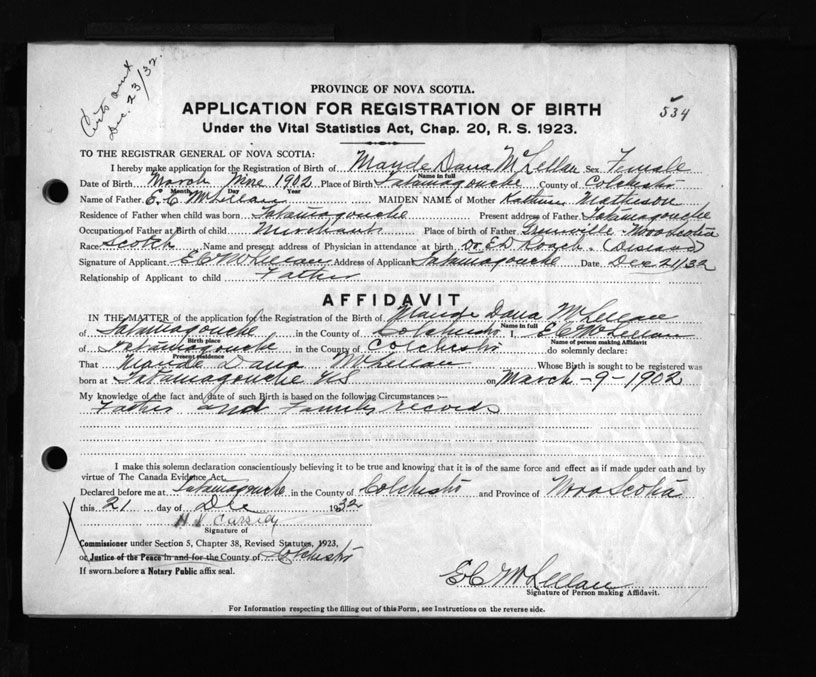 Certs sent
Dec. 23/32.
534
PROVINCE OF NOVA SCOTIA.
APPLICATION FOR REGISTRATION OF BIRTH
Under the Vital Statistics Act, Chap. 20, R. S. 1923.
TO THE REGISTRAR GENERAL OF NOVA SCOTIA:
I hereby make application for the Registration of Birth of Maude Dana McLellan Sex Female
Name in full
Date of Birth March Nine 1902 Place of Birth Tatamagouche County of Colchester
Month Day Year
Name of Father E. C. McLellan MAIDEN NAME of Mother Matheson
Residence of Father when child was born Tatamagouche Present address of Father Tatamagouche
Occupation of Father at Birth of child Merchant Place of birth of Father Nova Scotia
Race Scotch Name and present address of Physician in attendance at birth Dr E D Roach
Signature of Applicant E C McLellan Address of Applicant Tatamagouche Date Dec 21/32
Relationship of Applicant to child Father
AFFIDAVIT
IN THE MATTER of the application for the Registration of the Birth of Maude Dana McLellan
Name in full
of Tatamagouche in the County of Colchester I, E C McLellan
Birth place Name of person making Affidavit
of Tatamagouche in the County of Colchester do solemnly declare:
Present residence
That Maude Dana McLellan Whose Birth is sought to be registered was
born at Tatamagouche NS on March - 9 - 1902
My knowledge of the fact and date of such Birth is based on the following Circumstances :—
Father and Family records
I make this solemn declaration conscientiously believing it to be true and knowing that it is of the same force and effect as if made under oath and by
virtue of The Canada Evidence Act.
Declared before me at Tatamagouche in the County of Colchester and Province of Nova Scotia
this 21 day of Dec 1932
Cassidy
Signature of
Commissioner under Section 5, Chapter 38, Revised Statutes, 1923,
or Justice of the Peace in and for the County of Colchester
If sworn before a Notary Public affix seal.
E C McLellan
Signature of Person making Affidavit.
For Information respecting the filling out of this Form, see Instructions on the reverse side.